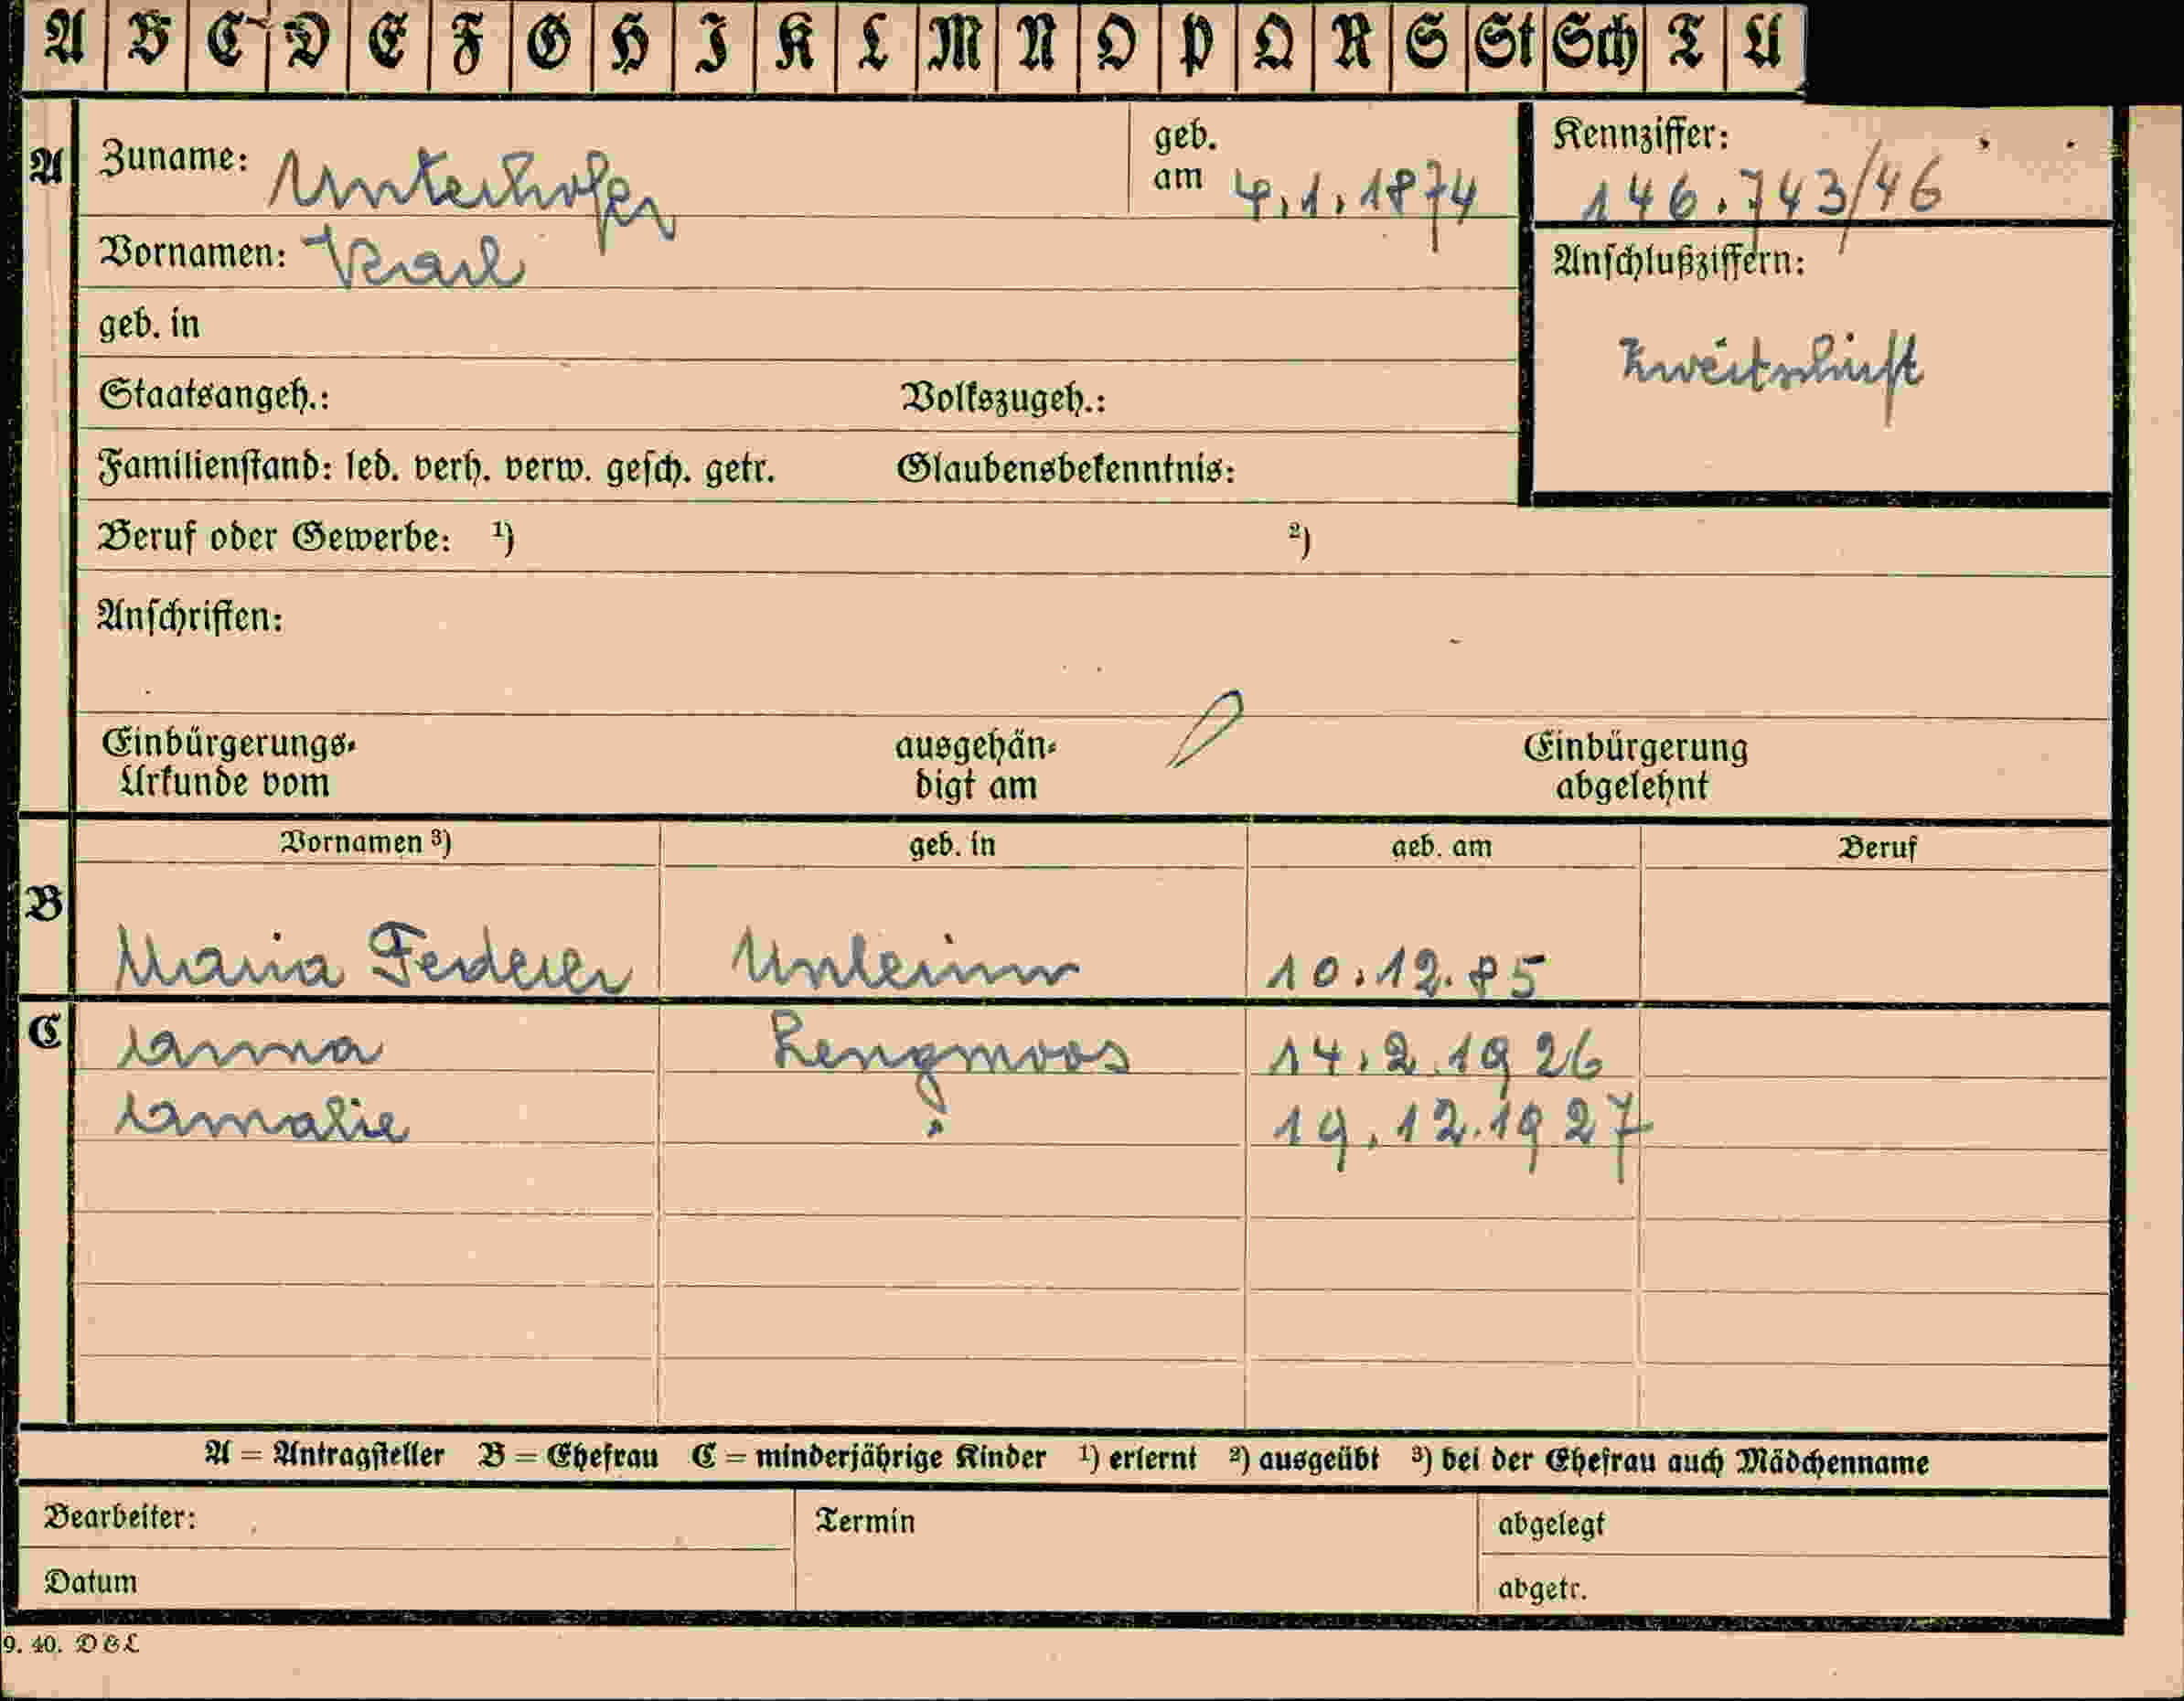 A B C D E F G H I K L M N O P Q R S St Sch T U
A
Zuname: Unterhofer
geb. am 4.1.1874
Kennziffer: 146.743/46
Vornamen: Karl
Anschlußziffern:
Zweitschrift
geb. in
Staatsangeh.: Volkszugeh.:
Familienstand: led. verh. verw. gesch. getr. Glaubensbekenntnis:
Beruf oder Gewerbe: 1) 2)
Anschriften:
Einbürgerungs-
Urkunde vom
ausgehän-
digt am
Einbürgerung
abgelehnt
Vornamen 3) geb. in geb. am Beruf
B
Maria Federer Unterinn 10.12.85
C
Anna Lengmoos 14.2.1926
Amalie " 19.12.1927
A = Antragsteller B = Ehefrau C = minderjährige Kinder 1) erlernt 2) ausgeübt 3) bei der Ehefrau auch Mädchenname
Bearbeiter: Termin abgelegt
Datum abgetr.
9. 40. DGL